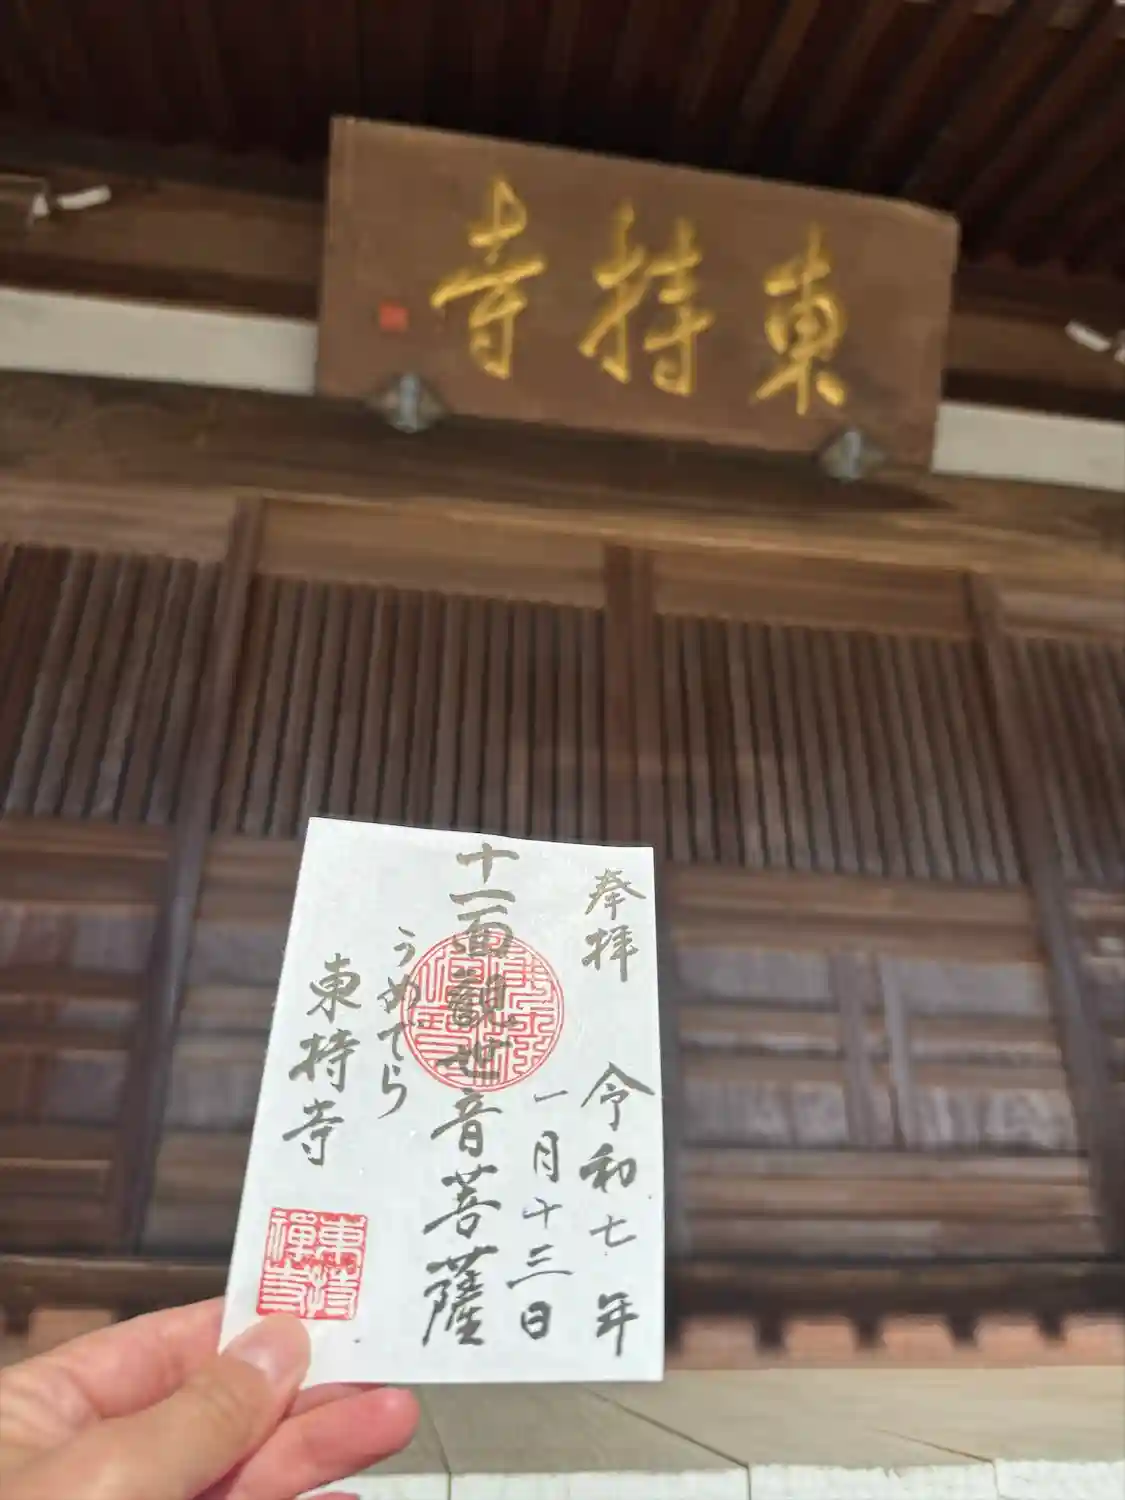 東持寺
奉拝
令和七年
一月十三日
十一面観世音菩薩
うめでら
東持寺
東持禅寺